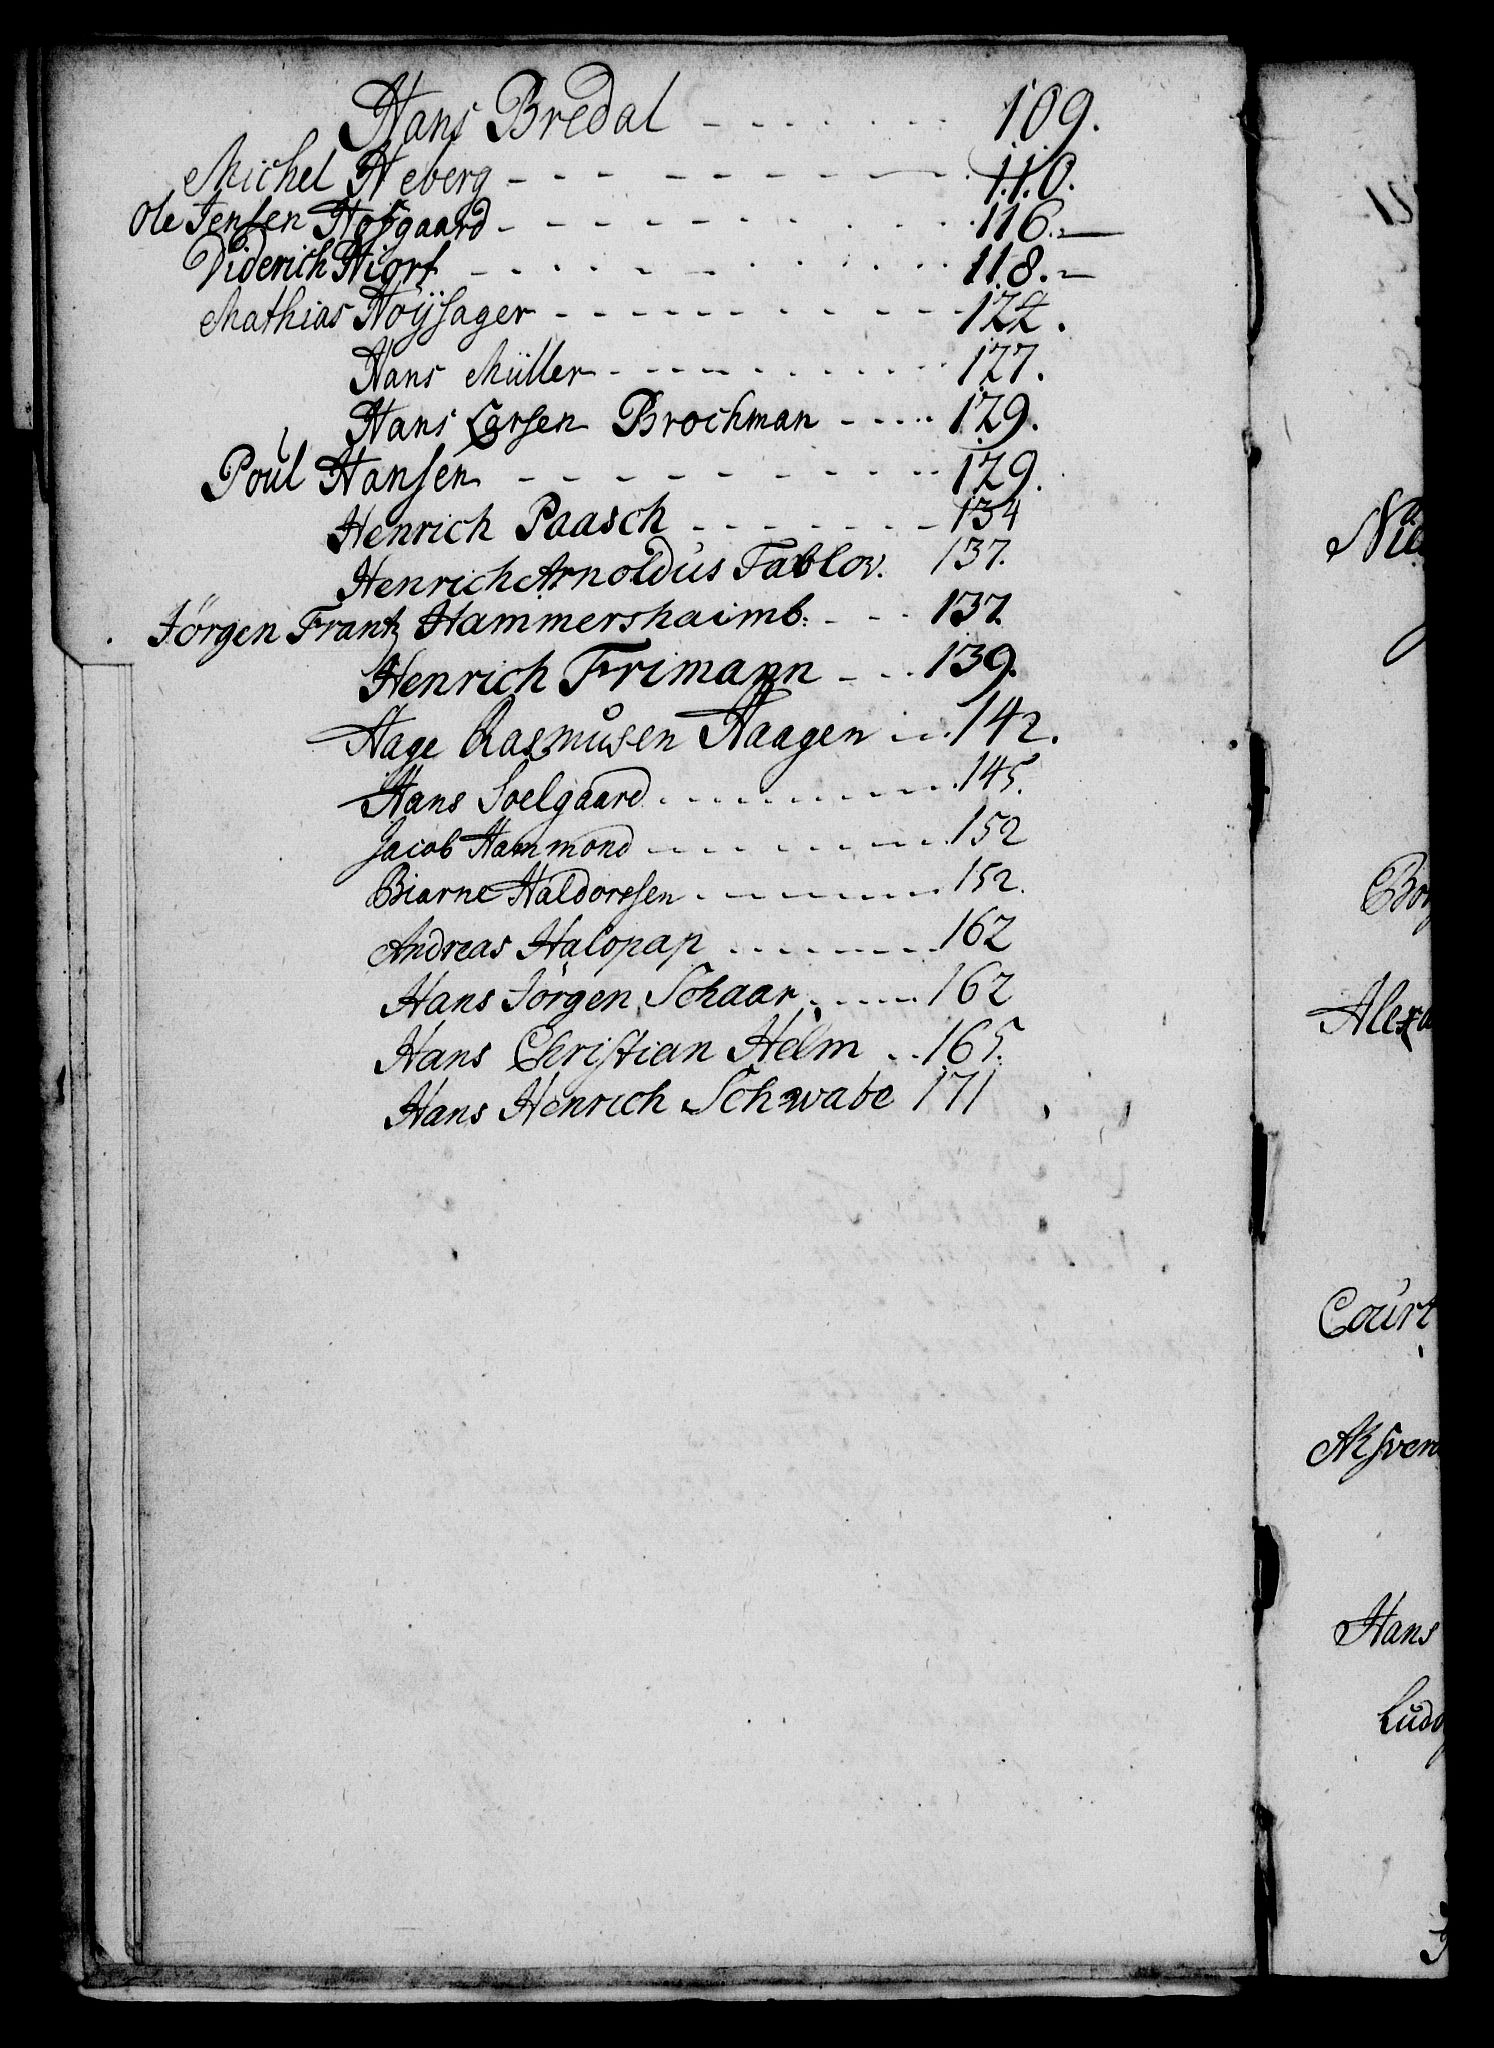 Hans Bredal - - - - - - - 109.
Michel Heberg - - - - - - - - 110.
Ole Jensen Hofgaard - - - - - - - - 116.
Diderich Hiort - - - - - - - - 118.
Mathias Höÿsager - - - - - - - - - 122.
Hans Müller - - - - - - - - - 127.
Hans Larsen Brochman - - - - 129.
Poul Hansen - - - - - - - - - 129.
Henrich Paasch - - - - - - - 134
Henrich Arnoldus Tablov. 137.
Jörgen Frantz Hammershaimb: - - - 137.
Henrich Frimann - - - 139.
Hage Rasmusen Haagen - - - 142.
Hans Soelgaard - - - - - - - - 145.
Jacob Hammond - - - - - - - - 152
Biarne Haldorssen - - - - - - - 152.
Andreas Halopap - - - - - - - 162
Hans Jörgen Schaar - - - - 162
Hans Christian Helm - - 165.
Hans Henrich Schwabe 171
Court
Hans